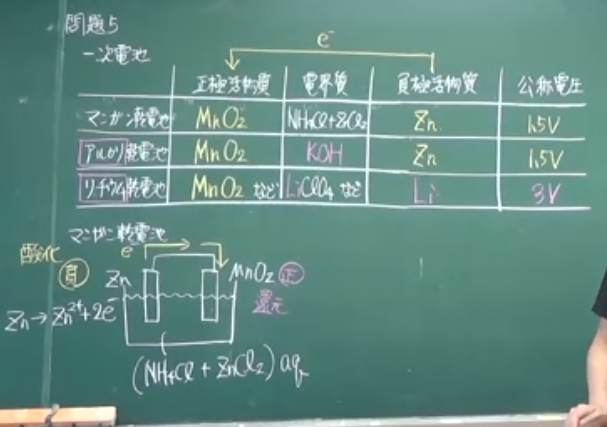 問題5
一次電池
e⁻
正極活物質 電界質 負極活物質 公称電圧
マンガン乾電池 MnO₂ NH₄Cl+ZnCl₂ Zn 1.5V
アルカリ乾電池 MnO₂ KOH Zn 1.5V
リチウム乾電池 MnO₂ など LiClO₄ など Li 3V
マンガン乾電池
酸化 e⁻
負 Zn MnO₂ 正
還元
Zn→Zn²⁺+2e⁻
(NH₄Cl + ZnCl₂) aq